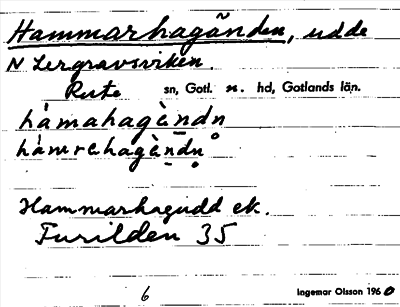 Hammarhagänden, udde
N Lergravsviken.
Rute sn, Gotl. n. hd, Gotlands län.
hàmahagè̱ndn̥
hàmrehagè̱ndn̥
Hammarhagudd ek.
Furilden 35
6 Ingemar Olsson 1960